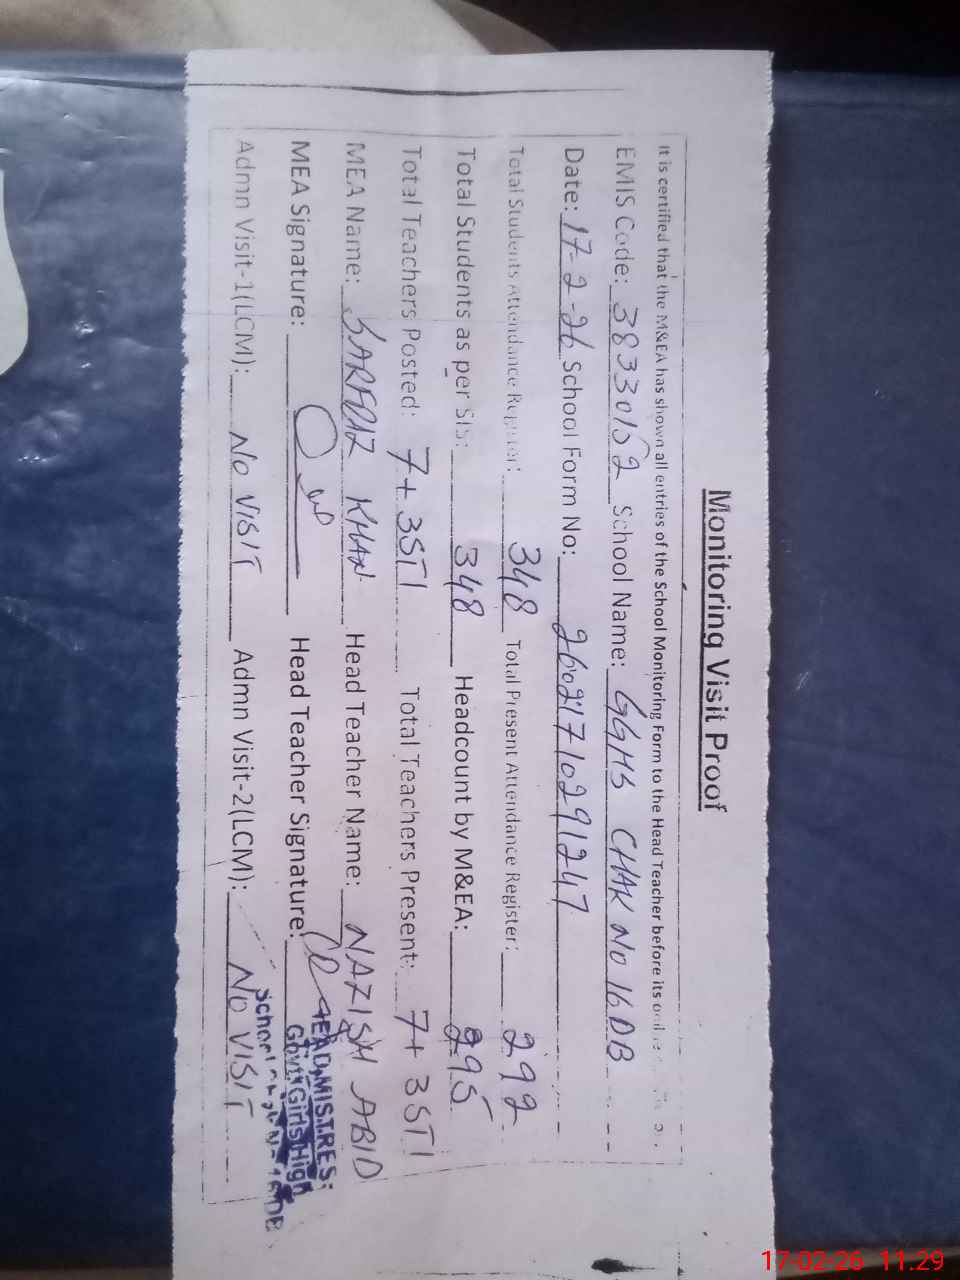 Monitoring Visit Proof
It is certified that the M&EA has shown all entries of the School Monitoring Form to the Head Teacher before its
EMIS Code: 38330152 School Name: GGHS CHAK No 16 DB
Date: 17-2-26 School Form No: 26021710291247
Total Students Attendance Register: 348 Total Present Attendance Register: 292
Total Students as per SIS: 348 Headcount by M&EA: 295
Total Teachers Posted: 7+3STI Total Teachers Present: 7+3STI
MEA Name: SARFRAZ KHAN Head Teacher Name: NAZISH ABID
MEA Signature: Head Teacher Signature:
HEADMISTRES:
Govt Girls High
School 16 DB
Admn Visit-1(LCM): No VISIT Admn Visit-2(LCM): No VISIT
17-02-26 11.29